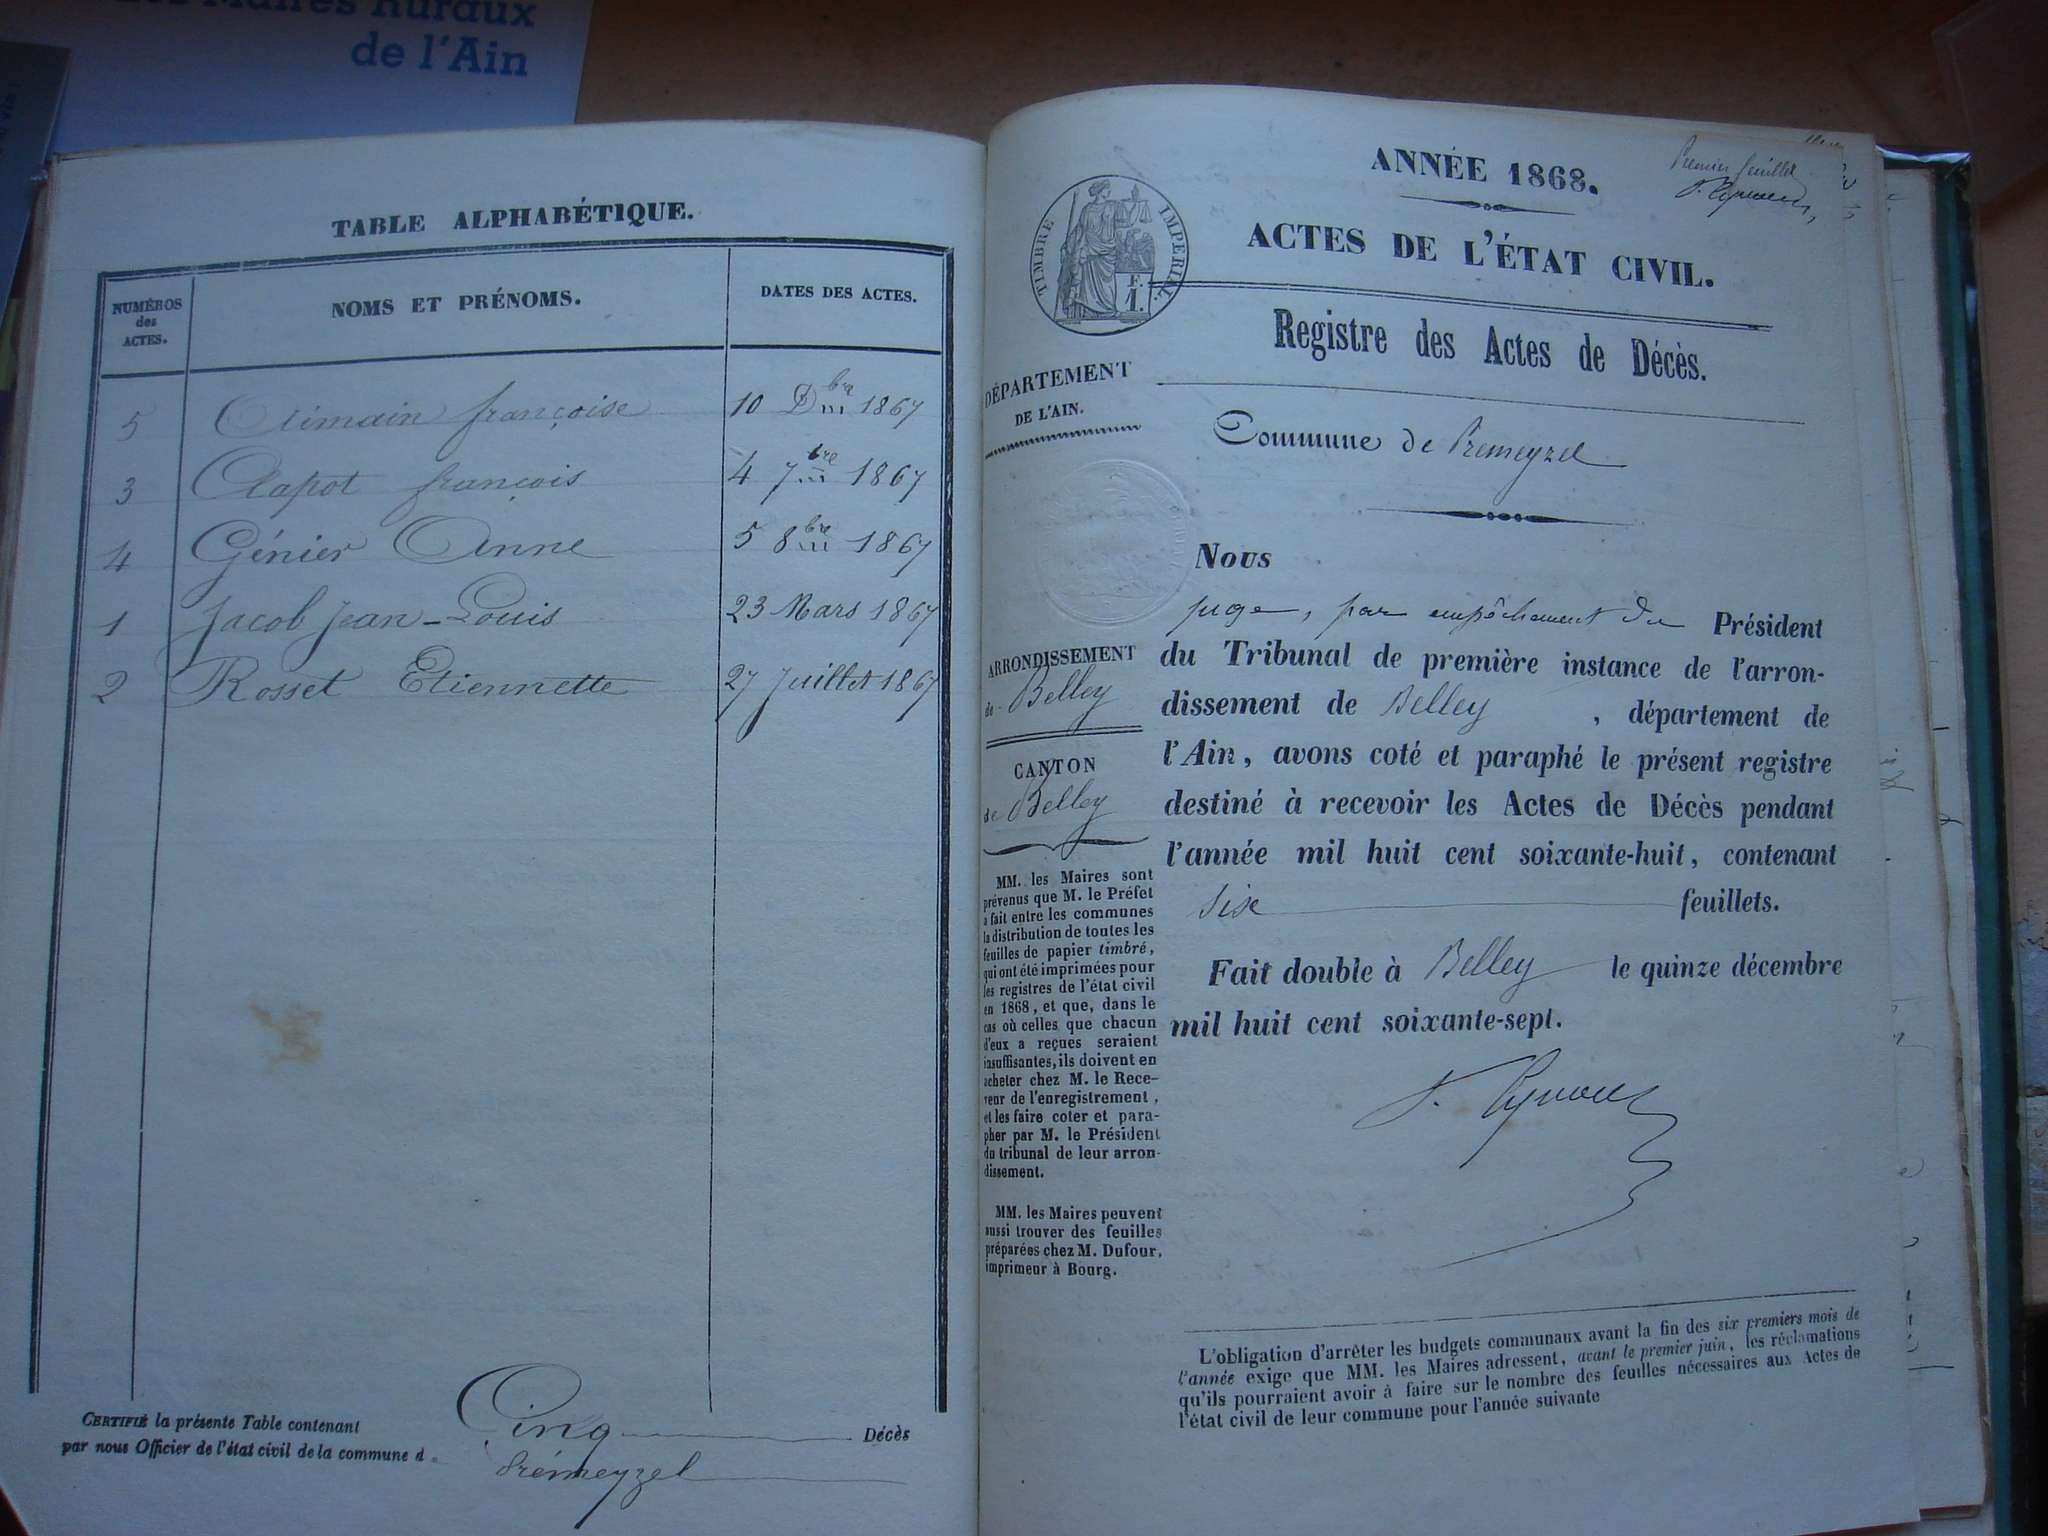 Maires Ruraux
de l'Ain
TABLE ALPHABÉTIQUE.
NUMÉROS
des
ACTES.
NOMS ET PRÉNOMS.
DATES DES ACTES.
5 Climain françoise 10 Dbre 1867
3 Clapot françois 4 7bre 1867
4 Génier Anne 5 8bre 1867
1 Jacob Jean-Louis 23 Mars 1867
2 Rosset Etiennette 27 Juillet 1867
CERTIFIÉ la présente Table contenant Cinq Décès
par nous Officier de l'état civil de la commune d Prémeyzel
Premier feuillet
ANNÉE 1868.
TIMBRE IMPERIAL
F.
1.
ACTES DE L'ÉTAT CIVIL.
Registre des Actes de Décès.
DÉPARTEMENT
DE L'AIN.
Commune de Premeyzel
Nous
juge, par empêchement du Président
du Tribunal de première instance de l'arron-
dissement de Belley, département de
l'Ain, avons coté et paraphé le présent registre
destiné à recevoir les Actes de Décès pendant
l'année mil huit cent soixante-huit, contenant
six feuillets.
Fait double à Belley le quinze décembre
mil huit cent soixante-sept.
ARRONDISSEMENT
de Belley
CANTON
de Belley
MM. les Maires sont
prévenus que M. le Préfet
a fait entre les communes
la distribution de toutes les
feuilles de papier timbré,
qui ont été imprimées pour
les registres de l'état civil
en 1868, et que, dans le
cas où celles que chacun
d'eux a reçues seraient
insuffisantes, ils doivent en
acheter chez M. le Rece-
veur de l'enregistrement,
et les faire coter et para-
pher par M. le Président
du tribunal de leur arron-
dissement.
MM. les Maires peuvent
aussi trouver des feuilles
préparées chez M. Dufour,
imprimeur à Bourg.
L'obligation d'arrêter les budgets communaux avant la fin des six premiers mois de
l'année exige que MM. les Maires adressent, avant le premier juin, les réclamations
qu'ils pourraient avoir à faire sur le nombre des feuilles nécessaires aux Actes de
l'état civil de leur commune pour l'année suivante